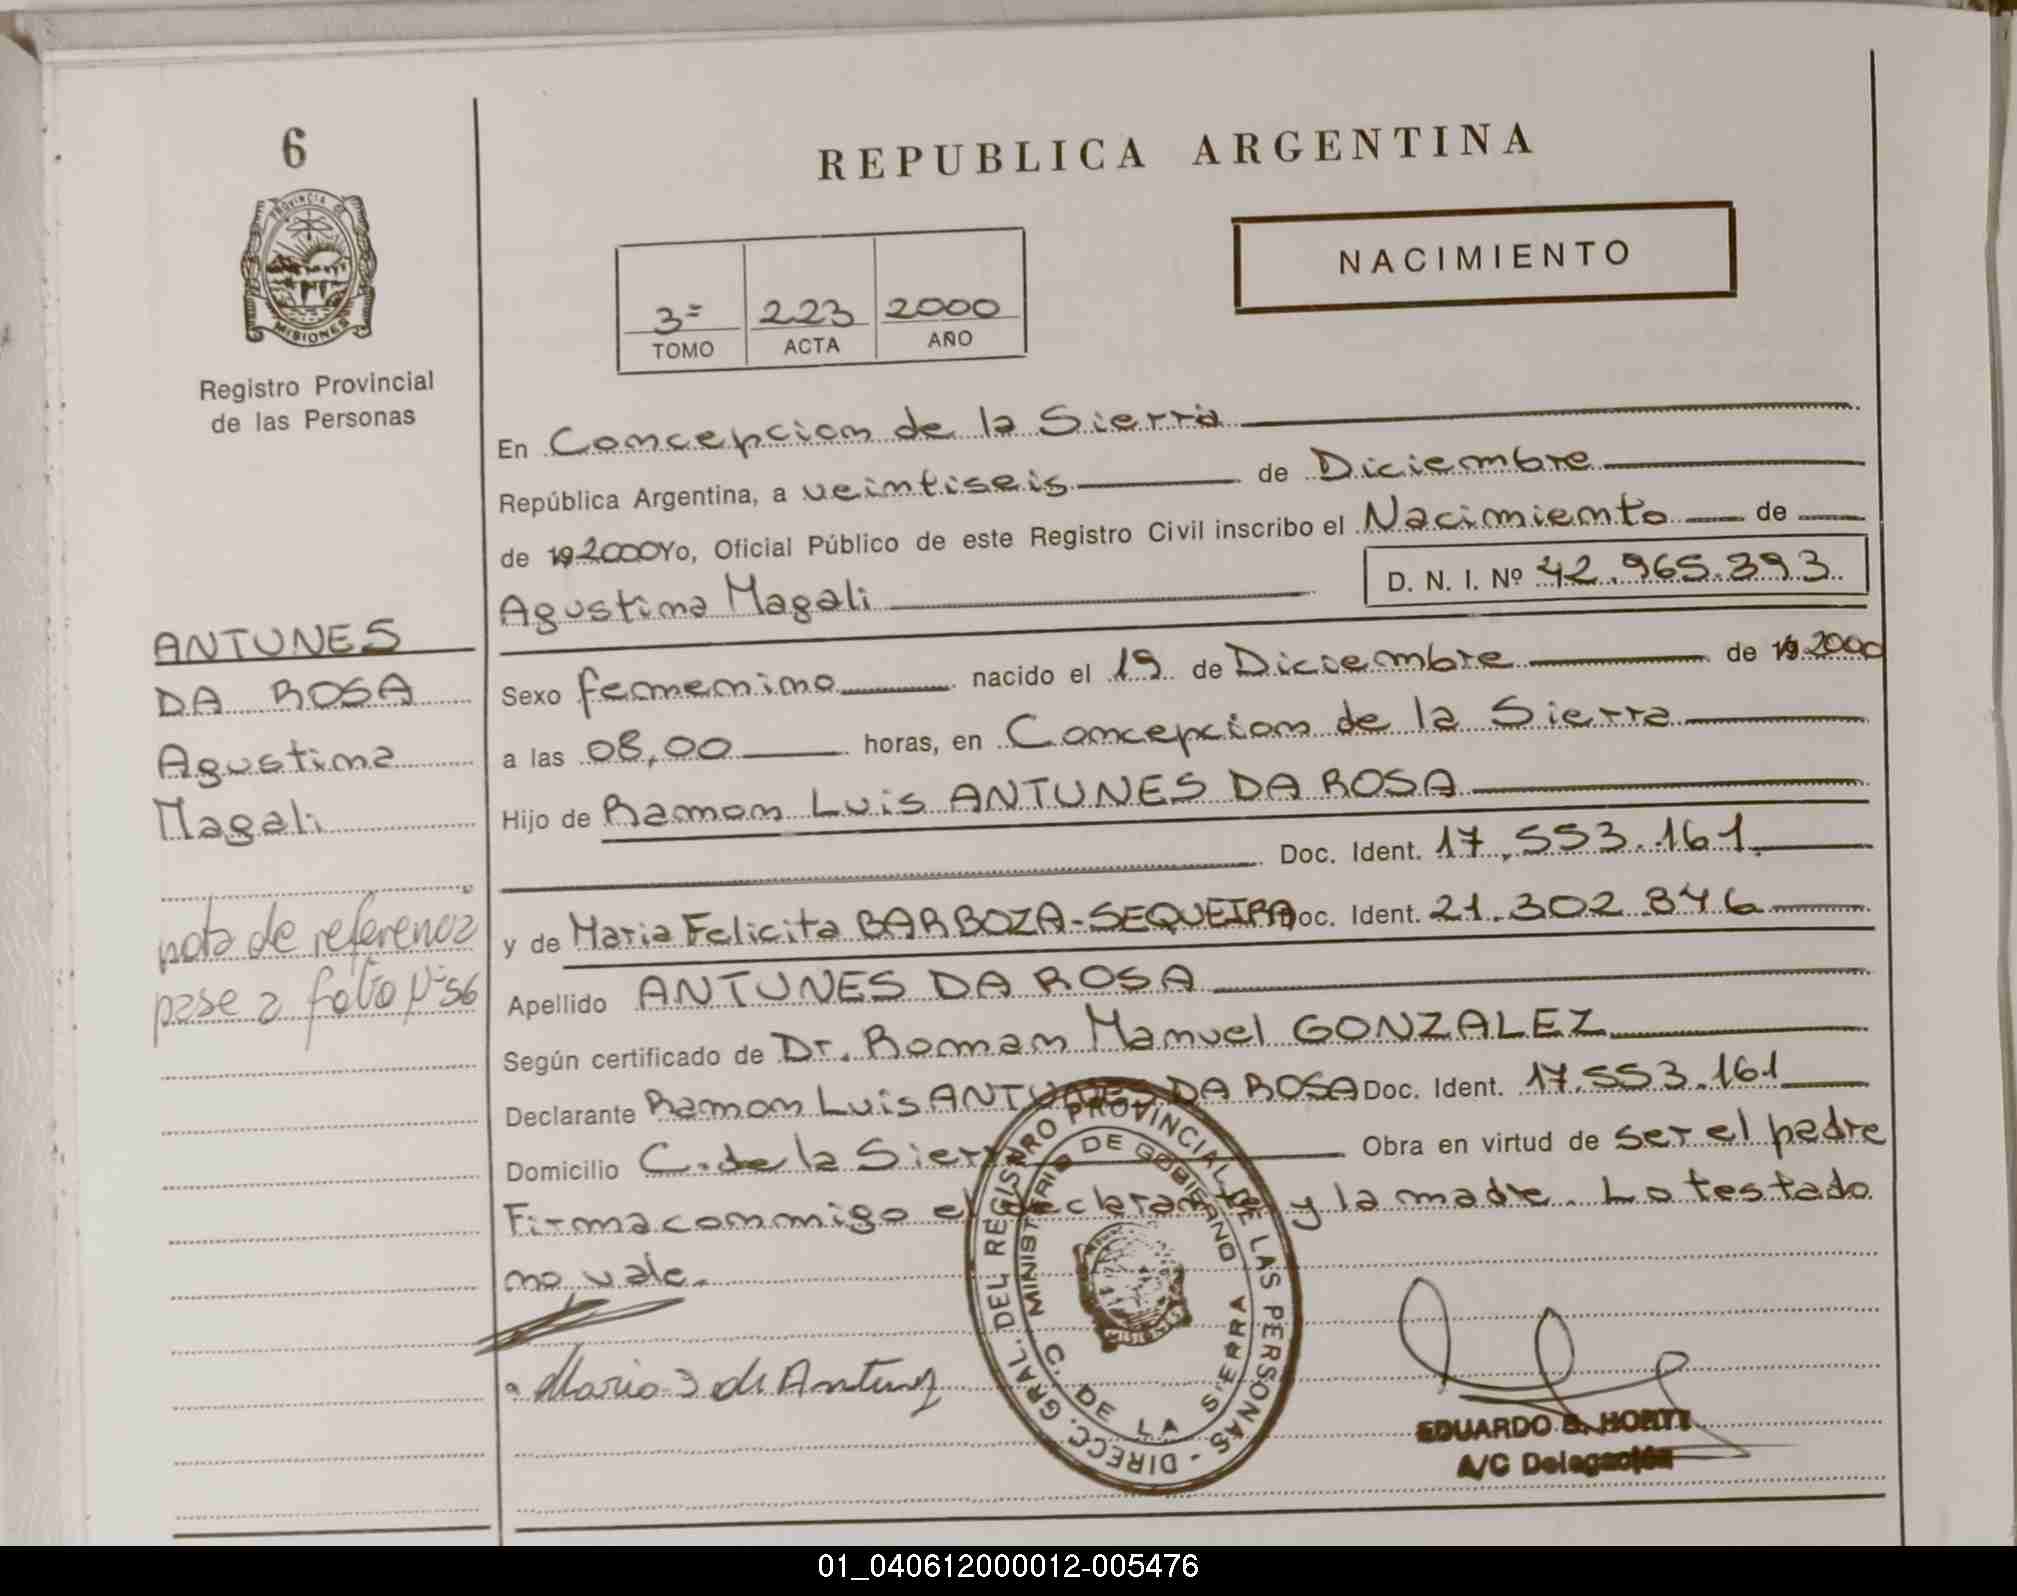 6
PROVINCIA DE
MISIONES
Registro Provincial
de las Personas
ANTUNES
DA ROSA
Agustina
Magali
nota de referencia
pase a folio Nº 56
REPUBLICA ARGENTINA
NACIMIENTO
3º 223 2000
TOMO ACTA AÑO
En Concepcion de la Sierra
República Argentina, a veintiseis de Diciembre
de 19 2000 Yo, Oficial Público de este Registro Civil inscribo el Nacimiento de
D. N. I. Nº 42.965.393
Agustina Magali
Sexo femenino nacido el 19 de Diciembre de 19 2000
a las 08,00 horas, en Concepcion de la Sierra
Hijo de Ramon Luis ANTUNES DA ROSA
Doc. Ident. 17.553.161
y de Maria Felicita BARBOZA-SEQUEIRA Doc. Ident. 21.302.846
Apellido ANTUNES DA ROSA
Según certificado de Dr. Roman Manuel GONZALEZ
Declarante Ramon Luis ANTUNES DA ROSA Doc. Ident. 17.553.161
Domicilio C. de la Sierra Obra en virtud de ser el padre
Firma conmigo el declarante y la madre. Lo testado
no vale.
DIRECC. GRAL. DEL REGISTRO PROVINCIAL DE LAS PERSONAS -
MINISTERIO DE GOBIERNO
C. DE LA SIERRA
MISIONES
EDUARDO B. HORTT
A/C Delegación
01_040612000012-005476